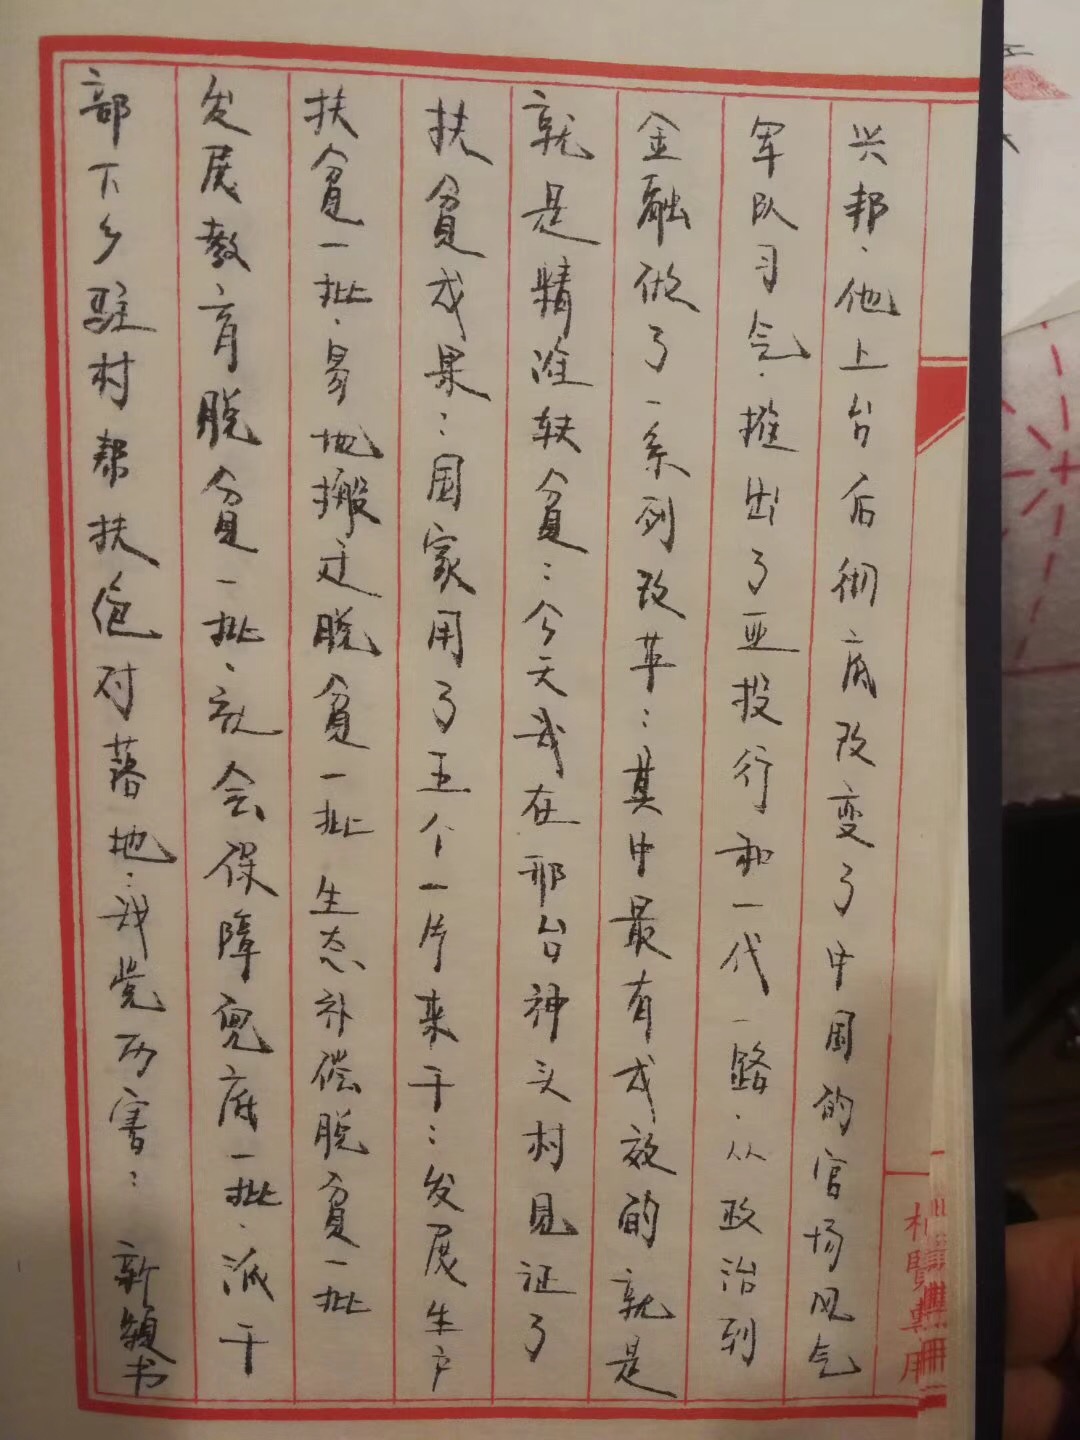 兴邦.他上台后彻底改变了中国的官场风气
军队习气.推出了亚投行和一代一路.从政治到
金融做了一系列改革:其中最有成效的就是
就是精准扶贫:今天我在邢台神头村见证了
扶贫成果:国家用了五个一片来干:发展生产
扶贫一批.易地搬迁脱贫一批 生态补偿脱贫一批
发展教育脱贫一批.社会保障兜底一批.派干
部下乡驻村帮扶包对落地:我党历害: 新颖书